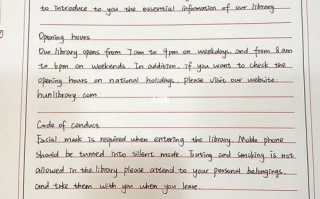 to introduce to you the essential information of our library.
Opening hours
Our library opens from 7am to 9pm on weekdays, and from 8am
to 6pm on weekends. In addition, if you want to check the
opening hours on national holidays, please visit our website:
hunlibrary.com
Code of conduct
Facial mask is required when entering the library. Mobile phone
should be turned into silent mode. and smoking is not
allowed in the library. please attend to your personal belongings,
and take them with you when you leave.